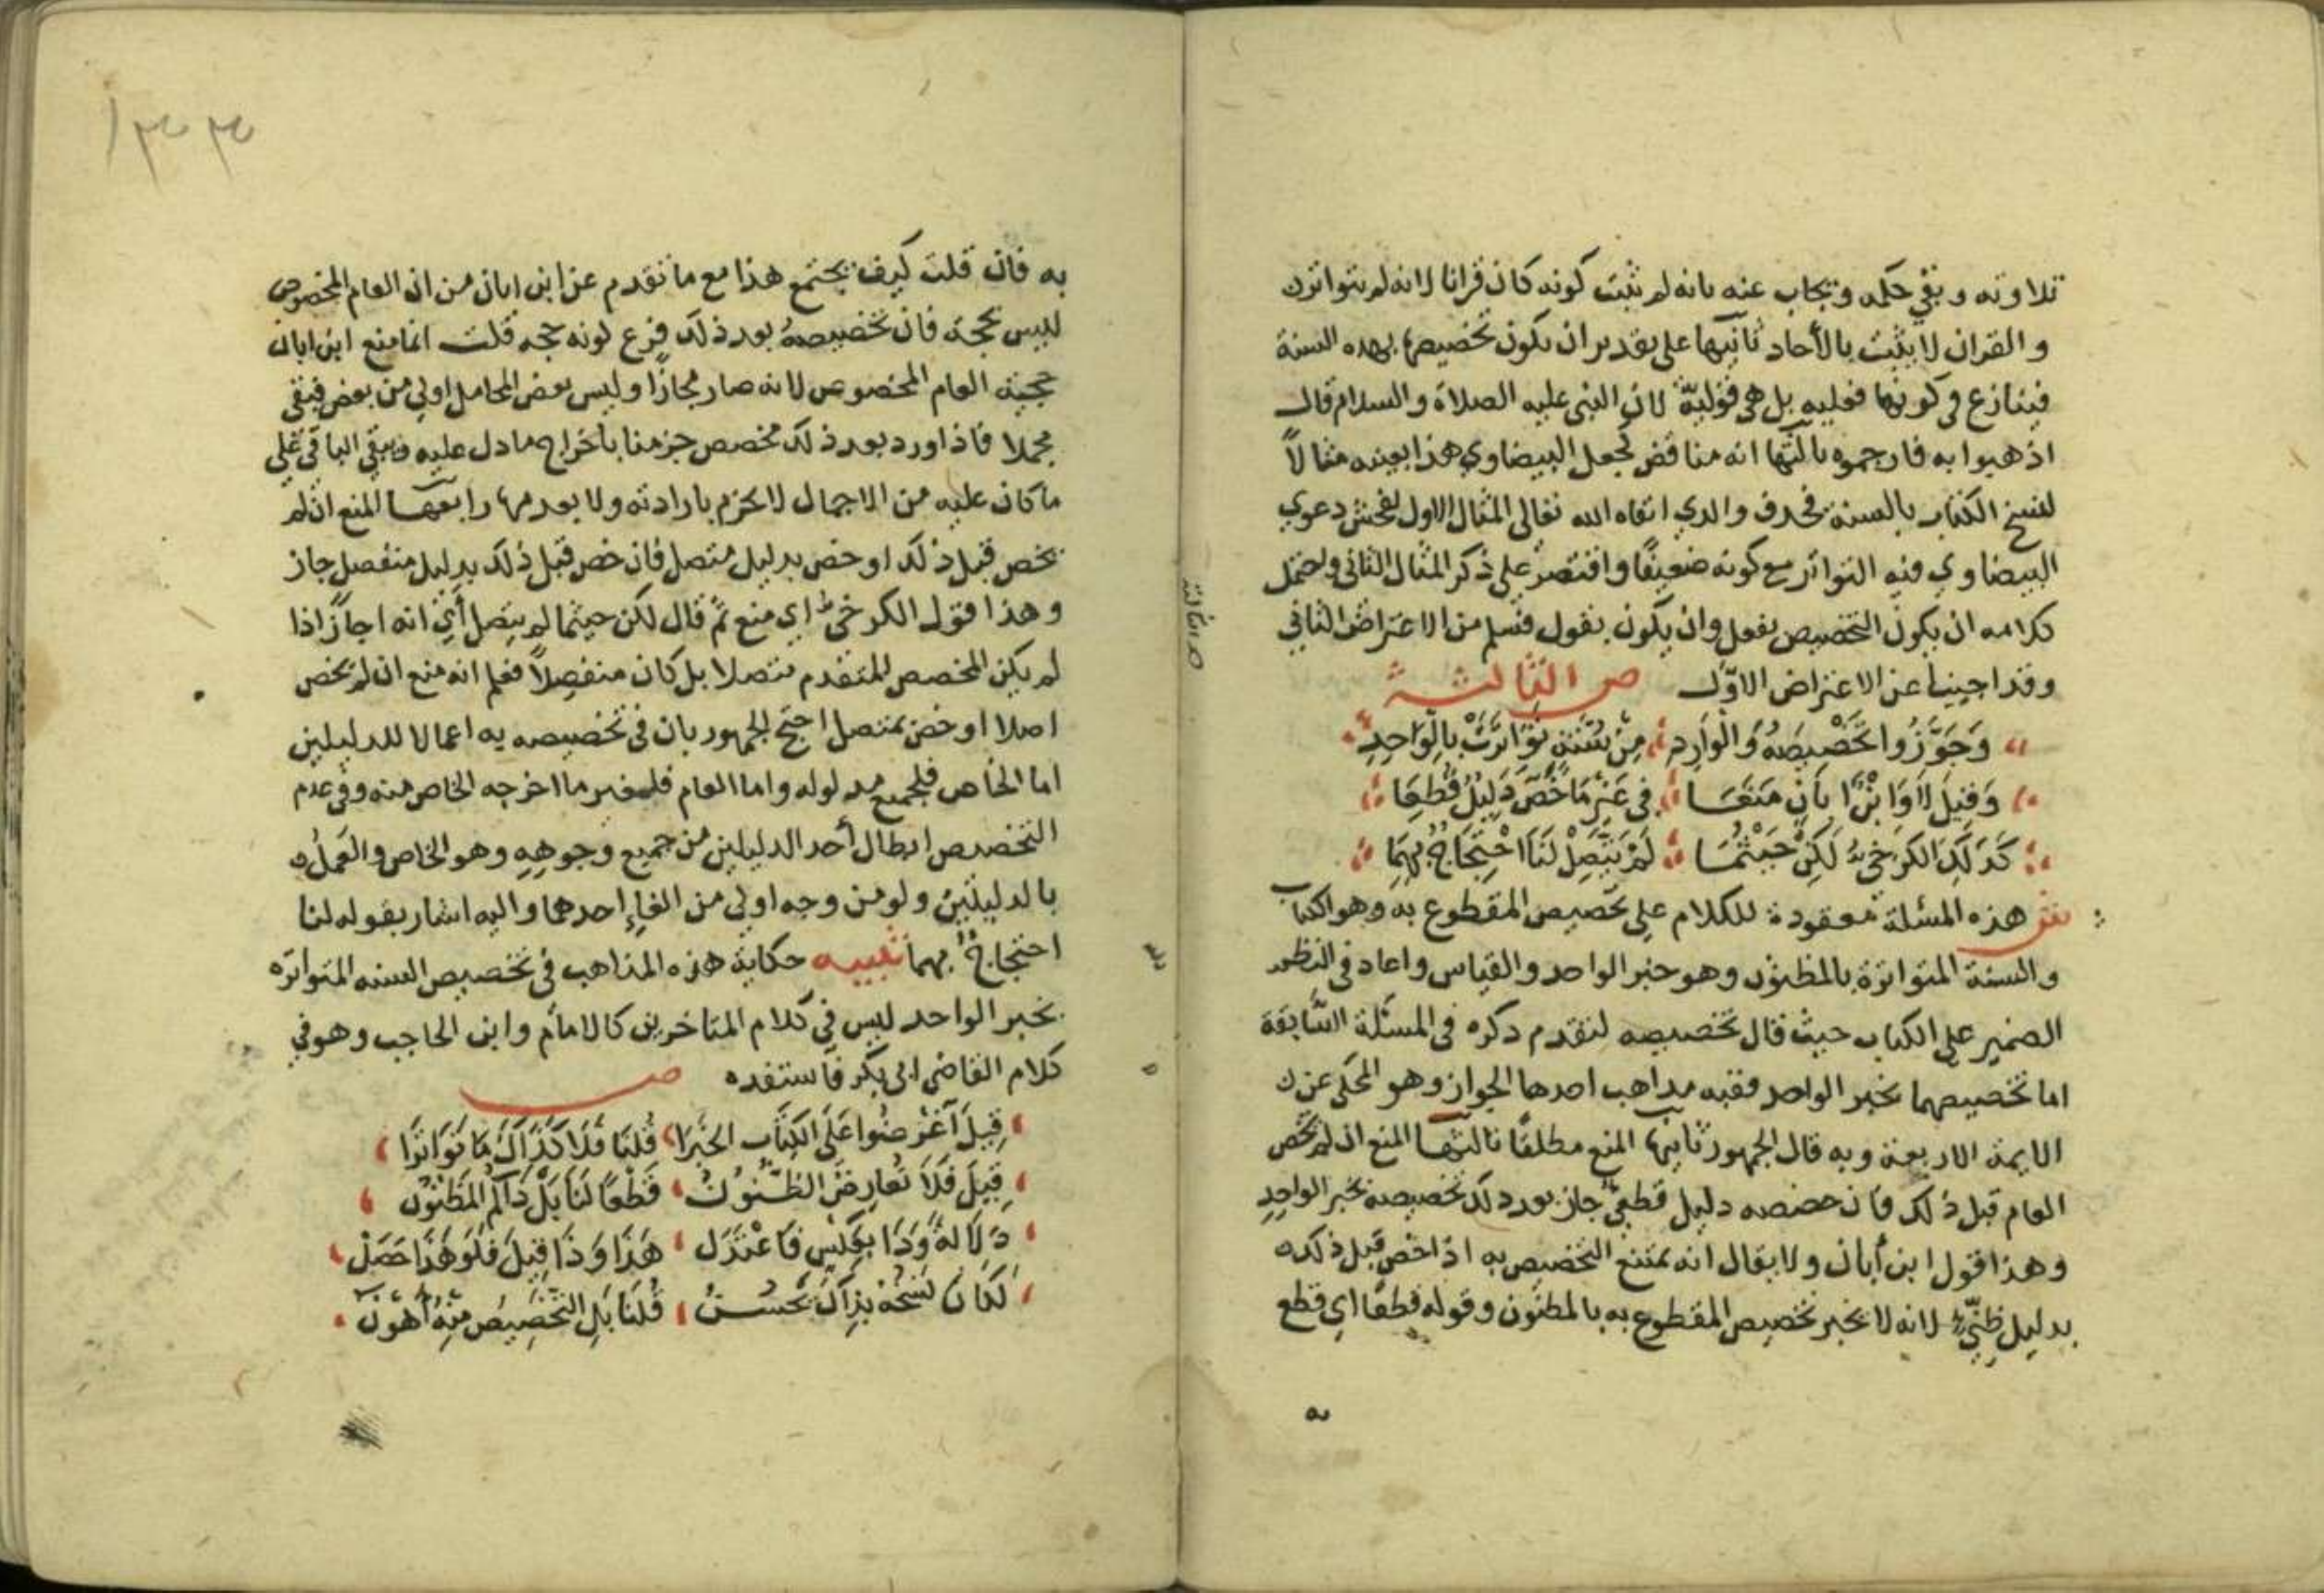 تلاوته وبقي حكمه ويجاب عنه بانه لم يثبت كونه كان قرانا لانه لم يتواتر
والقران لا يثبت بالأحاد ثانيها على تقدير ان يكون تخصيصها بهذه السنة
فينازع في كونها فعليه بل هي قوليّة لان النبي عليه الصلاة والسلام قال
اذهبوا به فارجموه ثالثها انه مناقض لجعل البيضاوي هذا بعينه مثالاً
لنسخ الكتاب بالسنة فحذف والدي ابقاه الله تعالى المثال الاول لفحش دعوي
البيضاوي فيه التواتر مع كونه ضعيفًا واقتصر على ذكر المثال الثاني واحتمل
كلامه ان يكون التخصيص بفعل وان يكون بقول فسلم من الاعتراض الثاني
وقد اجبنا عن الاعتراض الاوّل ص الثالثة
وَجَوَّزُوا تَخْصِيصَهُ وَالْوَارِدِ مِنْ سُنَّةٍ تَوَاتَرَتْ بِالْوَاحِدِ
وَقِيلَ لَا وَابْنُ أَبَانٍ مَنَعَا فِي غَيْرِ مَا خَصَّ دَلِيلٌ قُطِعَا
كَذَلِكَ الكَرْخِيُّ لَكِنْ حَيْثُمَا لَمْ يَتَّصِلْ لَنَا احْتِجَاجٌ بِهِمَا
ش هذه المسئلة معقودة للكلام على تخصيص المقطوع به وهو الكتاب
والسنة المتواترة بالمظنون وهو خبر الواحد والقياس واعاد في النظم
الضمير على الكتاب حيث قال تخصيصه لتقدم ذكره في المسئلة السَّابقة
اما تخصيصهما بخبر الواحد ففيه مذاهب احدها الجواز وهو المحكى عن
الايمة الاربعة وبه قال الجمهور ثانيها المنع مطلقًا ثالثها المنع ان لم يخص
العام قبل ذلك فان خصصه دليل قطعيّ جاز بعد ذلك تخصيصه بخبر الواحد
وهذا قول ابن أبان ولا يقال انه يمتنع التخصيص به اذا خص قبل ذلك
بدليل ظنّي لانه لا يخبر تخصيص المقطوع به بالمظنون وقوله قطعًا اي قطع
به
١٣٣
به فان قلت كيف يجتمع هذا مع ما تقدم عن ابن ابان من ان العام المخصوص
ليس بحجة فان تخصيصهُ بعد ذلك فرع كونه حجه قلت انما منع ابن ابان
حجية العام المخصوص لانه صار مجازًا وليس بعض المحامل اولي من بعض فيبقي
مجملا فاذا ورد بعد ذلك مخصص جزمنا باخراج ما دل عليه ويبقي الباقي علي
ما كان عليه من الاجمال لا يجزم بارادته ولا بعدمها رابعها المنع ان لم
يخص قبل ذلك او خص بدليل متصل فان خص قبل ذلك بدليل منفصل جاز
وهذا قول الكرخيّ اي منع ثم قال لكن حيثما لم يتصل أي انه اجازَ اذا
لم يكن المخصص المتقدم متصلا بل كان منفصِلاً فعلم انه منع ان لم يخص
اصلا او خص بمتصل احتج الجمهور بان في تخصيصه به اعمالا للدليلين
اما الخاص فبجميع مدلوله واما العام فلغير ما اخرجه الخاص منه وفي عدم
التخصيص ابطال أحد الدليلين من جميع وجوهه وهو الخاص والعمل
بالدليلين ولو من وجه اولى من الغاء احدهما واليه اشار بقوله لنا
احتجاجٌ بهما تنبيه حكاية هذه المذاهب في تخصيص السنه المتواتره
بخبر الواحد ليس في كلام المتاخرين كالامام وابن الحاجب وهو في
كلام القاضي ابي بكر فاستفده ص
قِيلَ آعْرِضُوا عَلَى الكِتَابِ الخَبَرَا قُلْنَا فَلَا كَذَاكَ مَا تَوَاتَرَا
قِيلَ فَلَا تُعَارِضُ الظُّنُونُ قَطْعًا لَنَا بَلْ ذَاكُمُ المَظْنُونُ
دَلَالَةً وَذَا بِعَكْسٍ فَاعْتَدَل هَذَا وَذَا قِيلَ فَلَوْ هَذَا حَصَلْ
لَكَانَ نَسْخُهُ بِذَاكَ يَحْسُنُ قُلْنَا بَلِ التَّخْصِيصُ مِنْهُ أَهْوَنُ